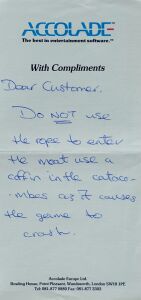 ACCOLADE™
The best in entertainment software.™
With Compliments
Dear Customer.
Do NOT use
the rope to enter
the moat use a
coffin in the cataco-
mbes as it causes
the game to
crash.
Accolade Europe Ltd.
Bowling House, Point Pleasant, Wandsworth, London SW18 1PE.
Tel: 081.877 0880 Fax: 081.877 3303